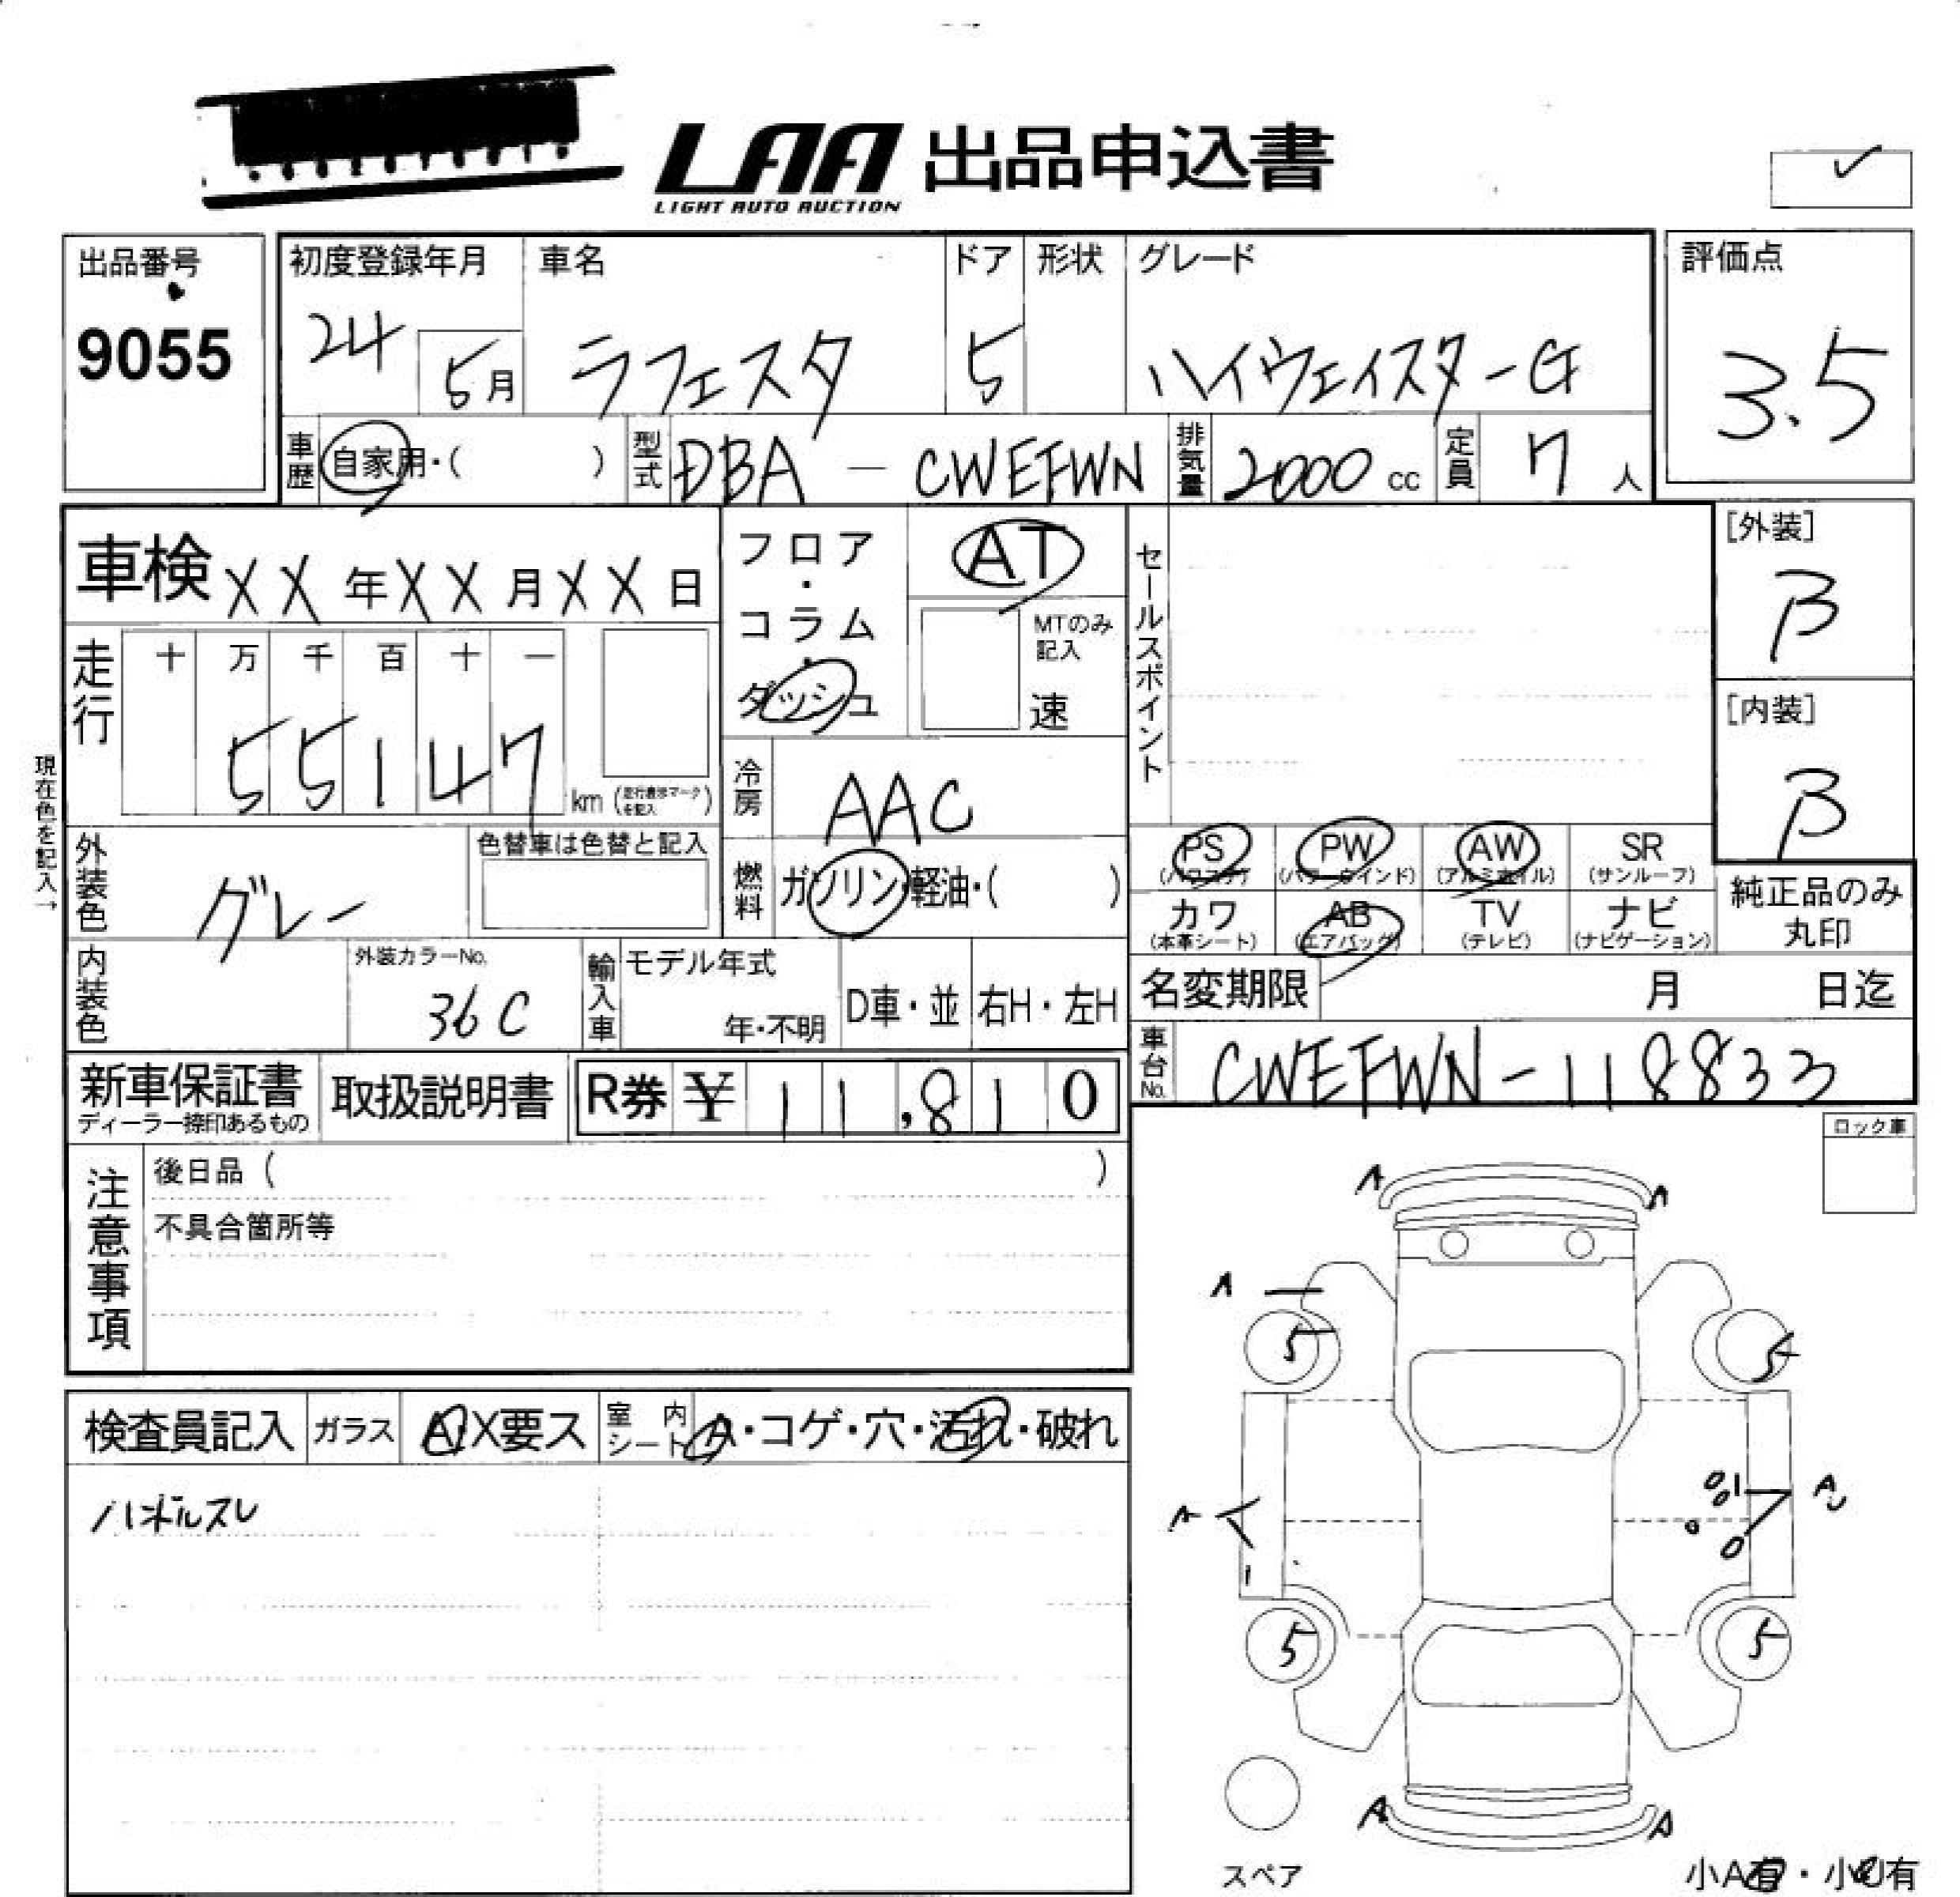 LAA 出品申込書
LIGHT AUTO AUCTION
出品番号
9055
初度登録年月
24
5月
車名
ラフェスタ
ドア
5
形状
グレード
ハイウェイスターG
評価点
3.5
車歴
自家用・( )
型式
DBA - CWEFWN
排気量
2000 cc
定員
7 人
車検 XX年XX月XX日
フロア・コラム・ダッシュ
AT
MTのみ記入
速
セールスポイント
[外装]
B
[内装]
B
走行
十 万 千 百 十 一
5 5 1 4 7
km (走行表示マークを記入)
現在色を記入→
冷房
AAC
外装色
グレー
色替車は色替と記入
燃料
ガソリン・軽油・( )
PS
(パワステ)
PW
(パワーウインド)
AW
(アルミホイル)
SR
(サンルーフ)
カワ
(本革シート)
AB
(エアバッグ)
TV
(テレビ)
ナビ
(ナビゲーション)
純正品のみ
丸印
内装色
外装カラーNo.
36C
輸入車
モデル年式
年・不明
D車・並
右H・左H
名変期限
月 日迄
車台No.
CWEFWN-118833
新車保証書
ディーラー捺印あるもの
取扱説明書
R券 ¥ 11,810
ロック車
注意事項
後日品 ( )
不具合箇所等
検査員記入
ガラス
A・X要ス
室内シート
A・コゲ・穴・汚れ・破れ
ハンドルスレ
A
A
A
5
5
A
A
5
5
A
A
スペア
小A有・小U有